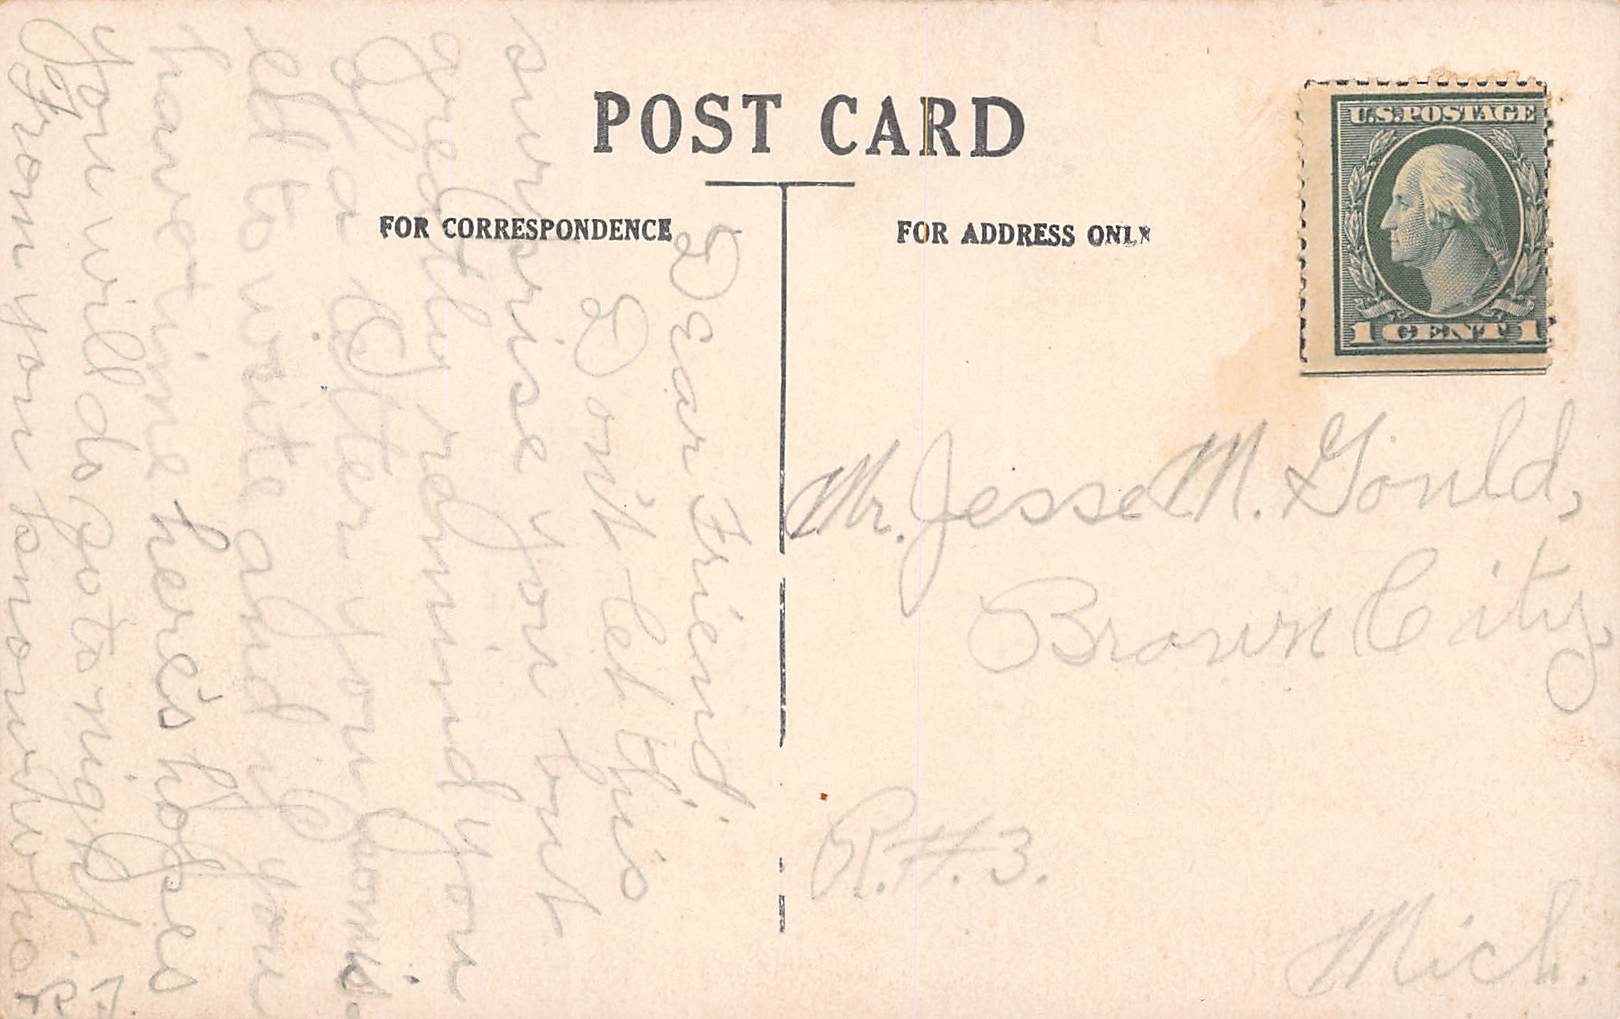 POST CARD
FOR CORRESPONDENCE
FOR ADDRESS ONLY
U.S. POSTAGE
1 CENT 1
Dear Friend.
Don't let this
surprise you but
greatly remind you
of a letter you promis-
ed to write and if you
have time here's hopes
you will do so tonight.
From you know who
Mr. Jesse M. Gould,
Brown City,
R.#.3.
Mich.